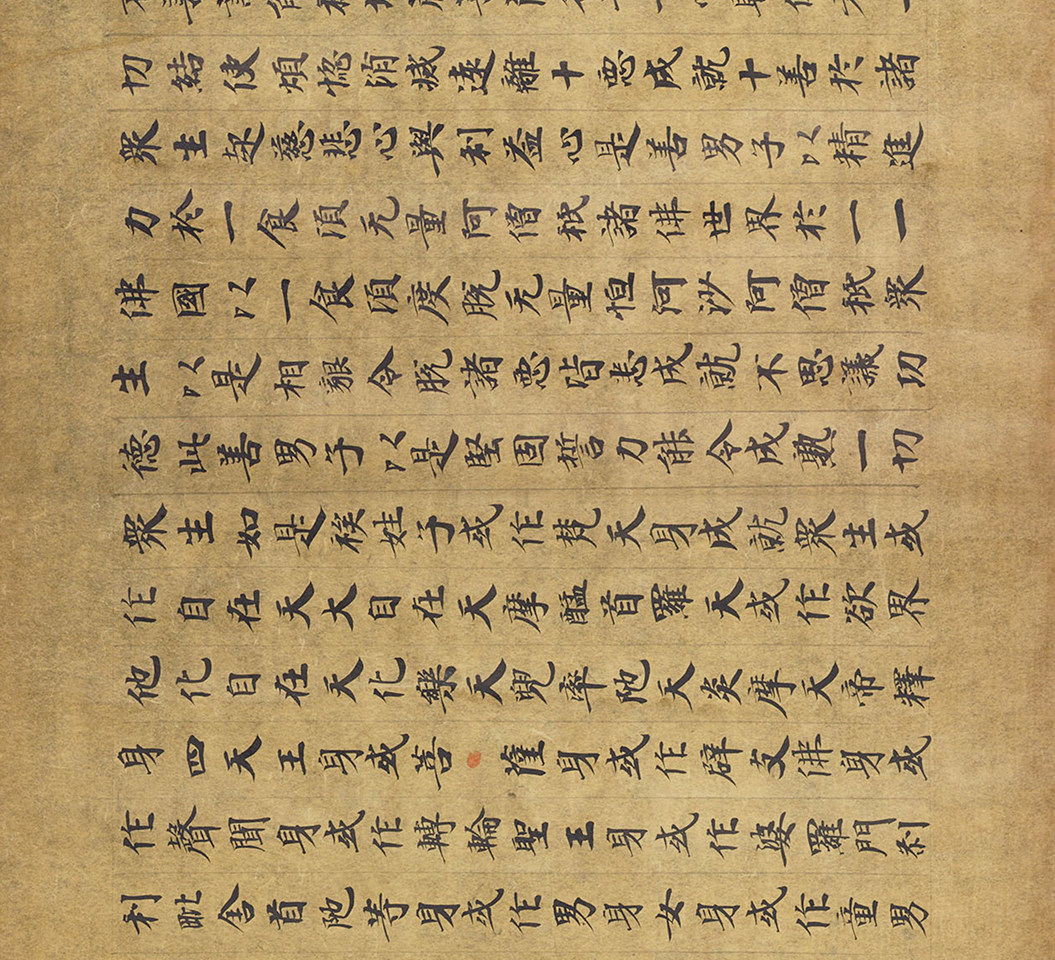 切結使煩惱消滅遠離十惡成就十善於諸
衆生起慈悲心與利益心是善男子以精進
力於一食須无量阿僧祇諸佛世界於一一
佛國以一食須度脫无量恒河沙阿僧祇衆
生以是相貌令脫諸惡皆悉成就不思議功
德此善男子以是堅固誓力能令成熟一切
衆生如是族姓子或作梵天身成就衆生或
作自在天大自在天摩醯首羅天或作欲界
他化自在天化樂天兜率陀天炎摩天帝釋
身四天王身或菩薩身或作辟支佛身或
作聲聞身或作轉輪聖王身或作婆羅門刹
利毗舍首陀等身或作男身女身或作童男